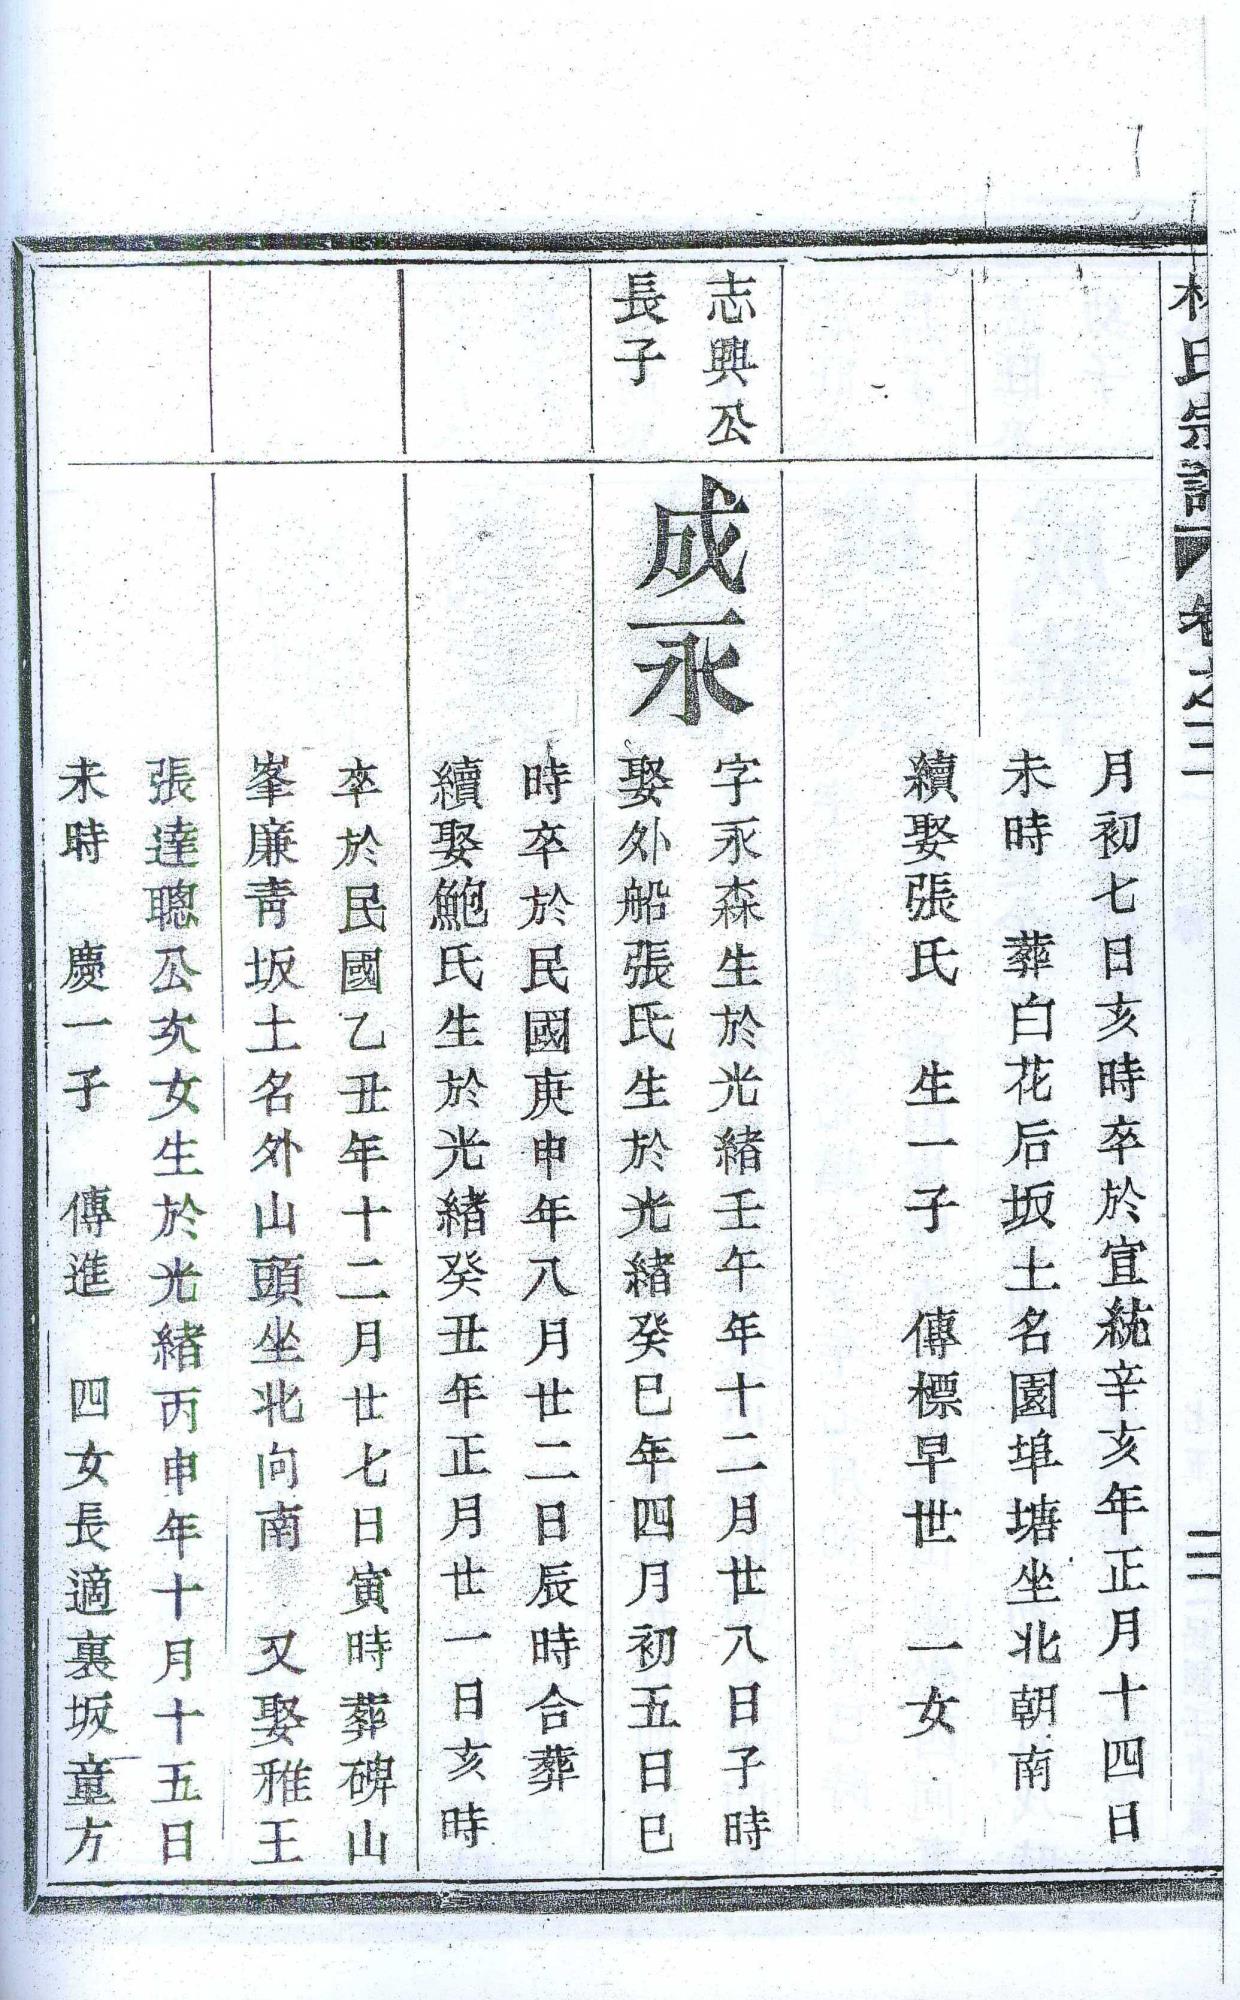 氏宗譜 卷之二 三
月初七日亥時卒於宣統辛亥年正月十四日
未時 葬白花后坂土名園埠塘坐北朝南
續娶張氏 生一子 傳標早世 一女
志興公
長子
成永
字永森生於光緒壬午年十二月廿八日子時
娶外船張氏生於光緒癸巳年四月初五日巳
時卒於民國庚申年八月廿二日辰時合葬
續娶鮑氏生於光緒癸丑年正月廿一日亥時
卒於民國乙丑年十二月廿七日寅時葬碑山
峯廉青坂土名外山頭坐北向南 又娶雅王
張達聰公次女生於光緒丙申年十月十五日
未時 慶一子 傳進 四女長適裏坂童方